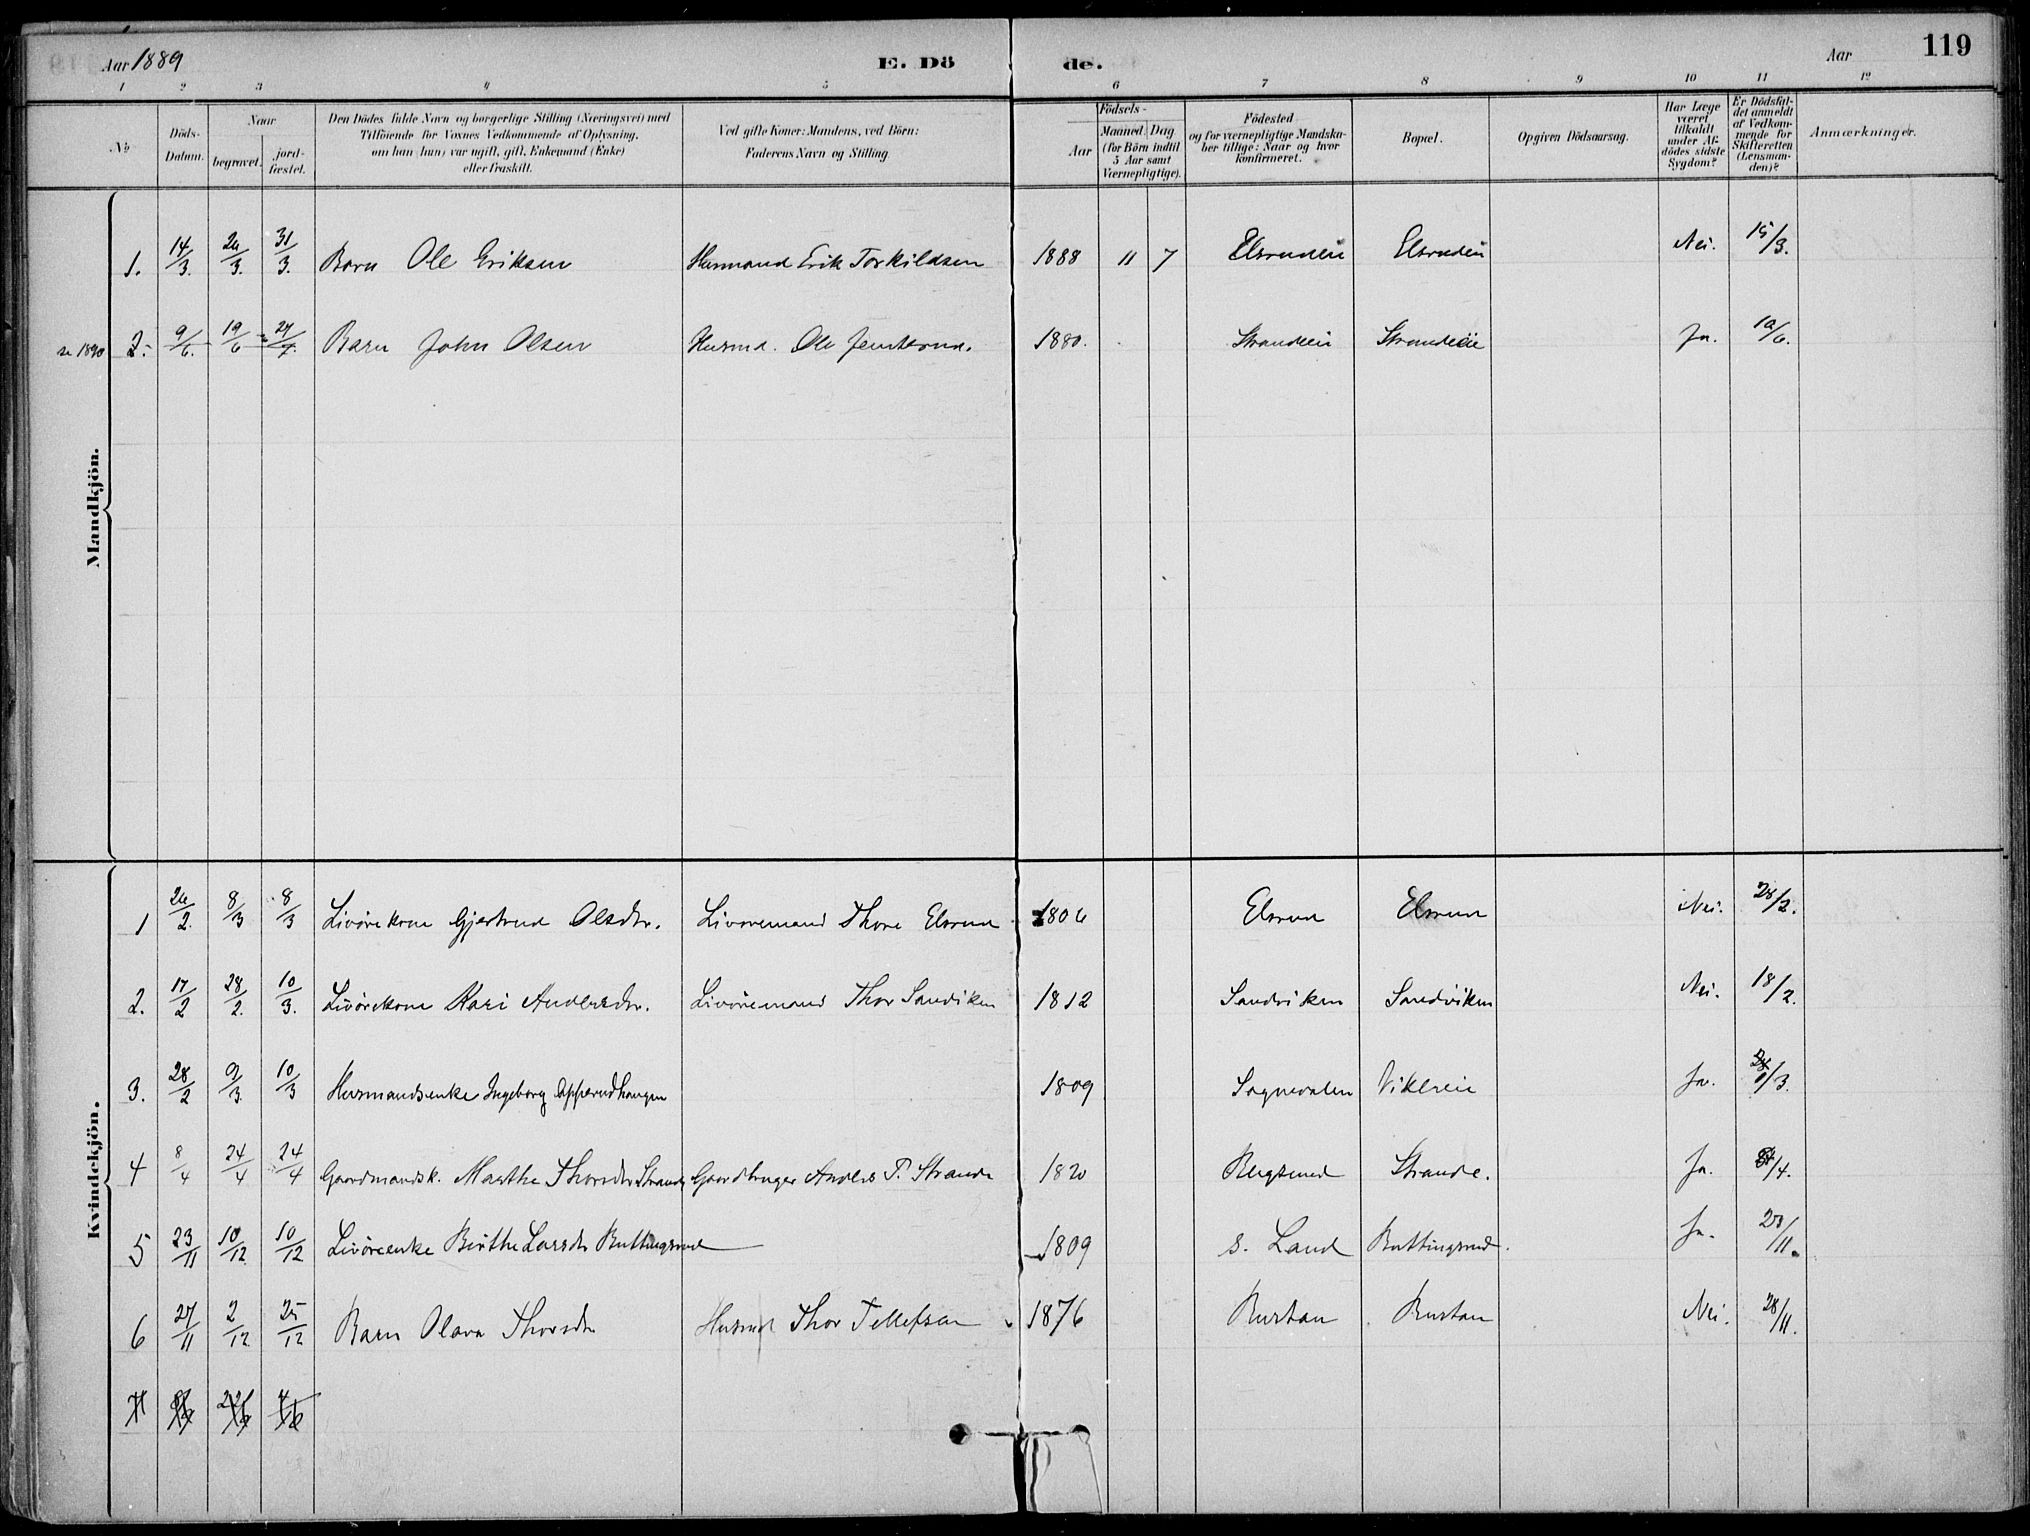 Aar 1889 E. Dö de. Aar 119
1 2 3 4 5 6 7 8 9 10 11 12
No
Döds-Datum.
Naar
begravet.
jord-fæstet.
Den Dödes fulde Navn og borgerlige Stilling (Næringsvei) med
Tilföiende for Voxnes Vedkommende af Oplysning,
om han (hun) var ugift, gift, Enkemand (Enke)
eller fraskilt.
Ved gifte Koner: Mandens, ved Börn:
Faderens Navn og Stilling
Födsels-
Aar
Maaned. Dag
(for Börn indtil
5 Aar samt
Værnepligtige).
Födested
og for værnepligtige Mandska-
ber tillige: Naar og hvor
konfirmeret.
Bopæl.
Opgiven Dödsaarsag.
Har Læge
været
tilkaldt
under Af-
dödes sidste
Sygdom?
Er Dödsfal-
det anmeldt
af Vedkom-
mende for
Skifteretten
(Lensman-
den)?
Anmærkninger.
Mandkjön.
1. 14/3 24/3. 31/3. Barn Ole Eriksen Husmand Erik Torkildsen 1888 11 7 Elsrudeie Elsrudeie Nei. 15/3.
se 1890 2. 9/6. 19/6 Barn John Olsen Husmd. Ole 1880. Strandeie Strandeie Ja. 10/6.
Kvindekjön.
1 24/2. 8/3 8/3 Livörekone Gjertrud Olsdtr. Livöremand Thore Elsrud 1806 Elsrud Elsrud Nei. 28/2.
2. 17/2 28/2. 10/3. Livörekone Kari Andersdtr. Livöremand Thor Sandviken 1812 Sandviken Sandviken Nei. 18/2.
3. 28/2 9/3. 10/3 Husmandsenke Ingeborg Opperudhaugen 1809 Sognedalen Vikereie Ja. /3.
4 8/4 24/4 24/4 Gaardmandsk. Marthe Thorsdtr Strande Gaardbruger Anders T. Strande 1820 Bergsund Strande. Ja. /4.
5 23/11 10/12. 10/12 Livöreenke Birthe Larsdtr Buttingsrud 1809 S. Land Buttingsrud. Ja. /11.
6 27/11 2/12. 25/12 Barn Olava Thorsdtr Husmd Thor Tellefsen 1876 Burtan Burtan Nei. 28/11.